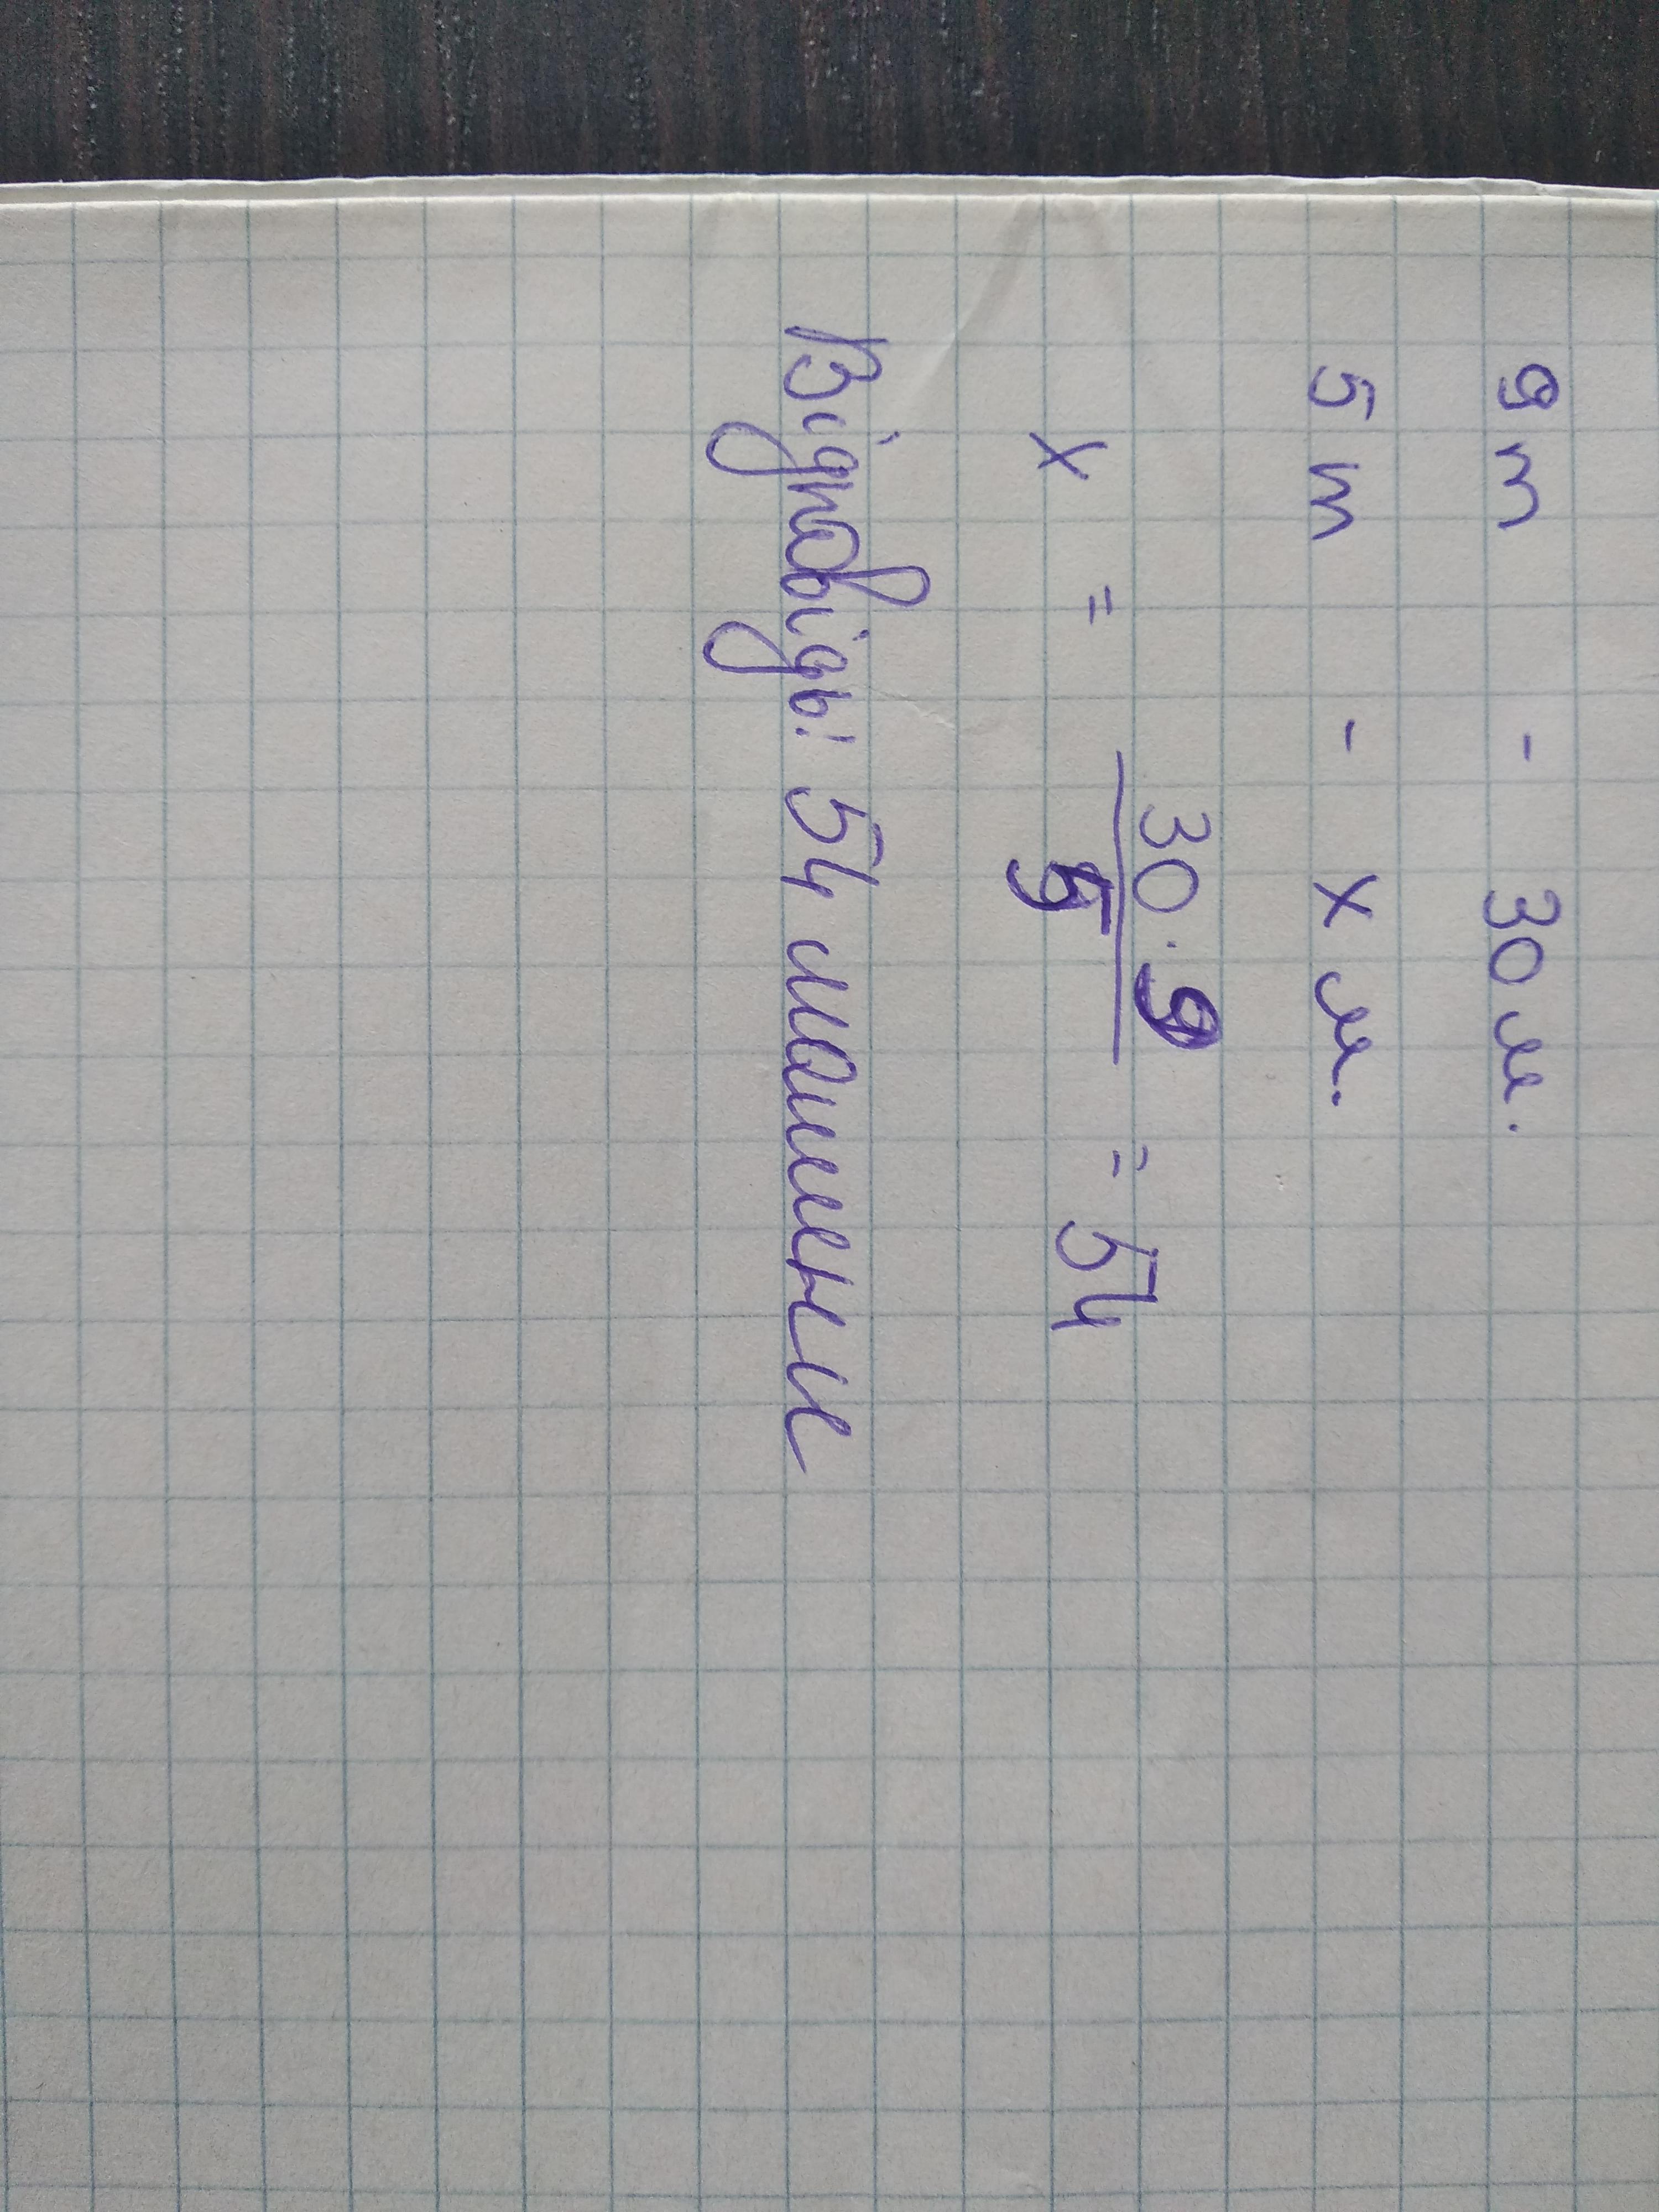 9 т - 30 м.
5 т - х м.
х = 30 · 9 / 5 = 54
Відповідь: 54 машини